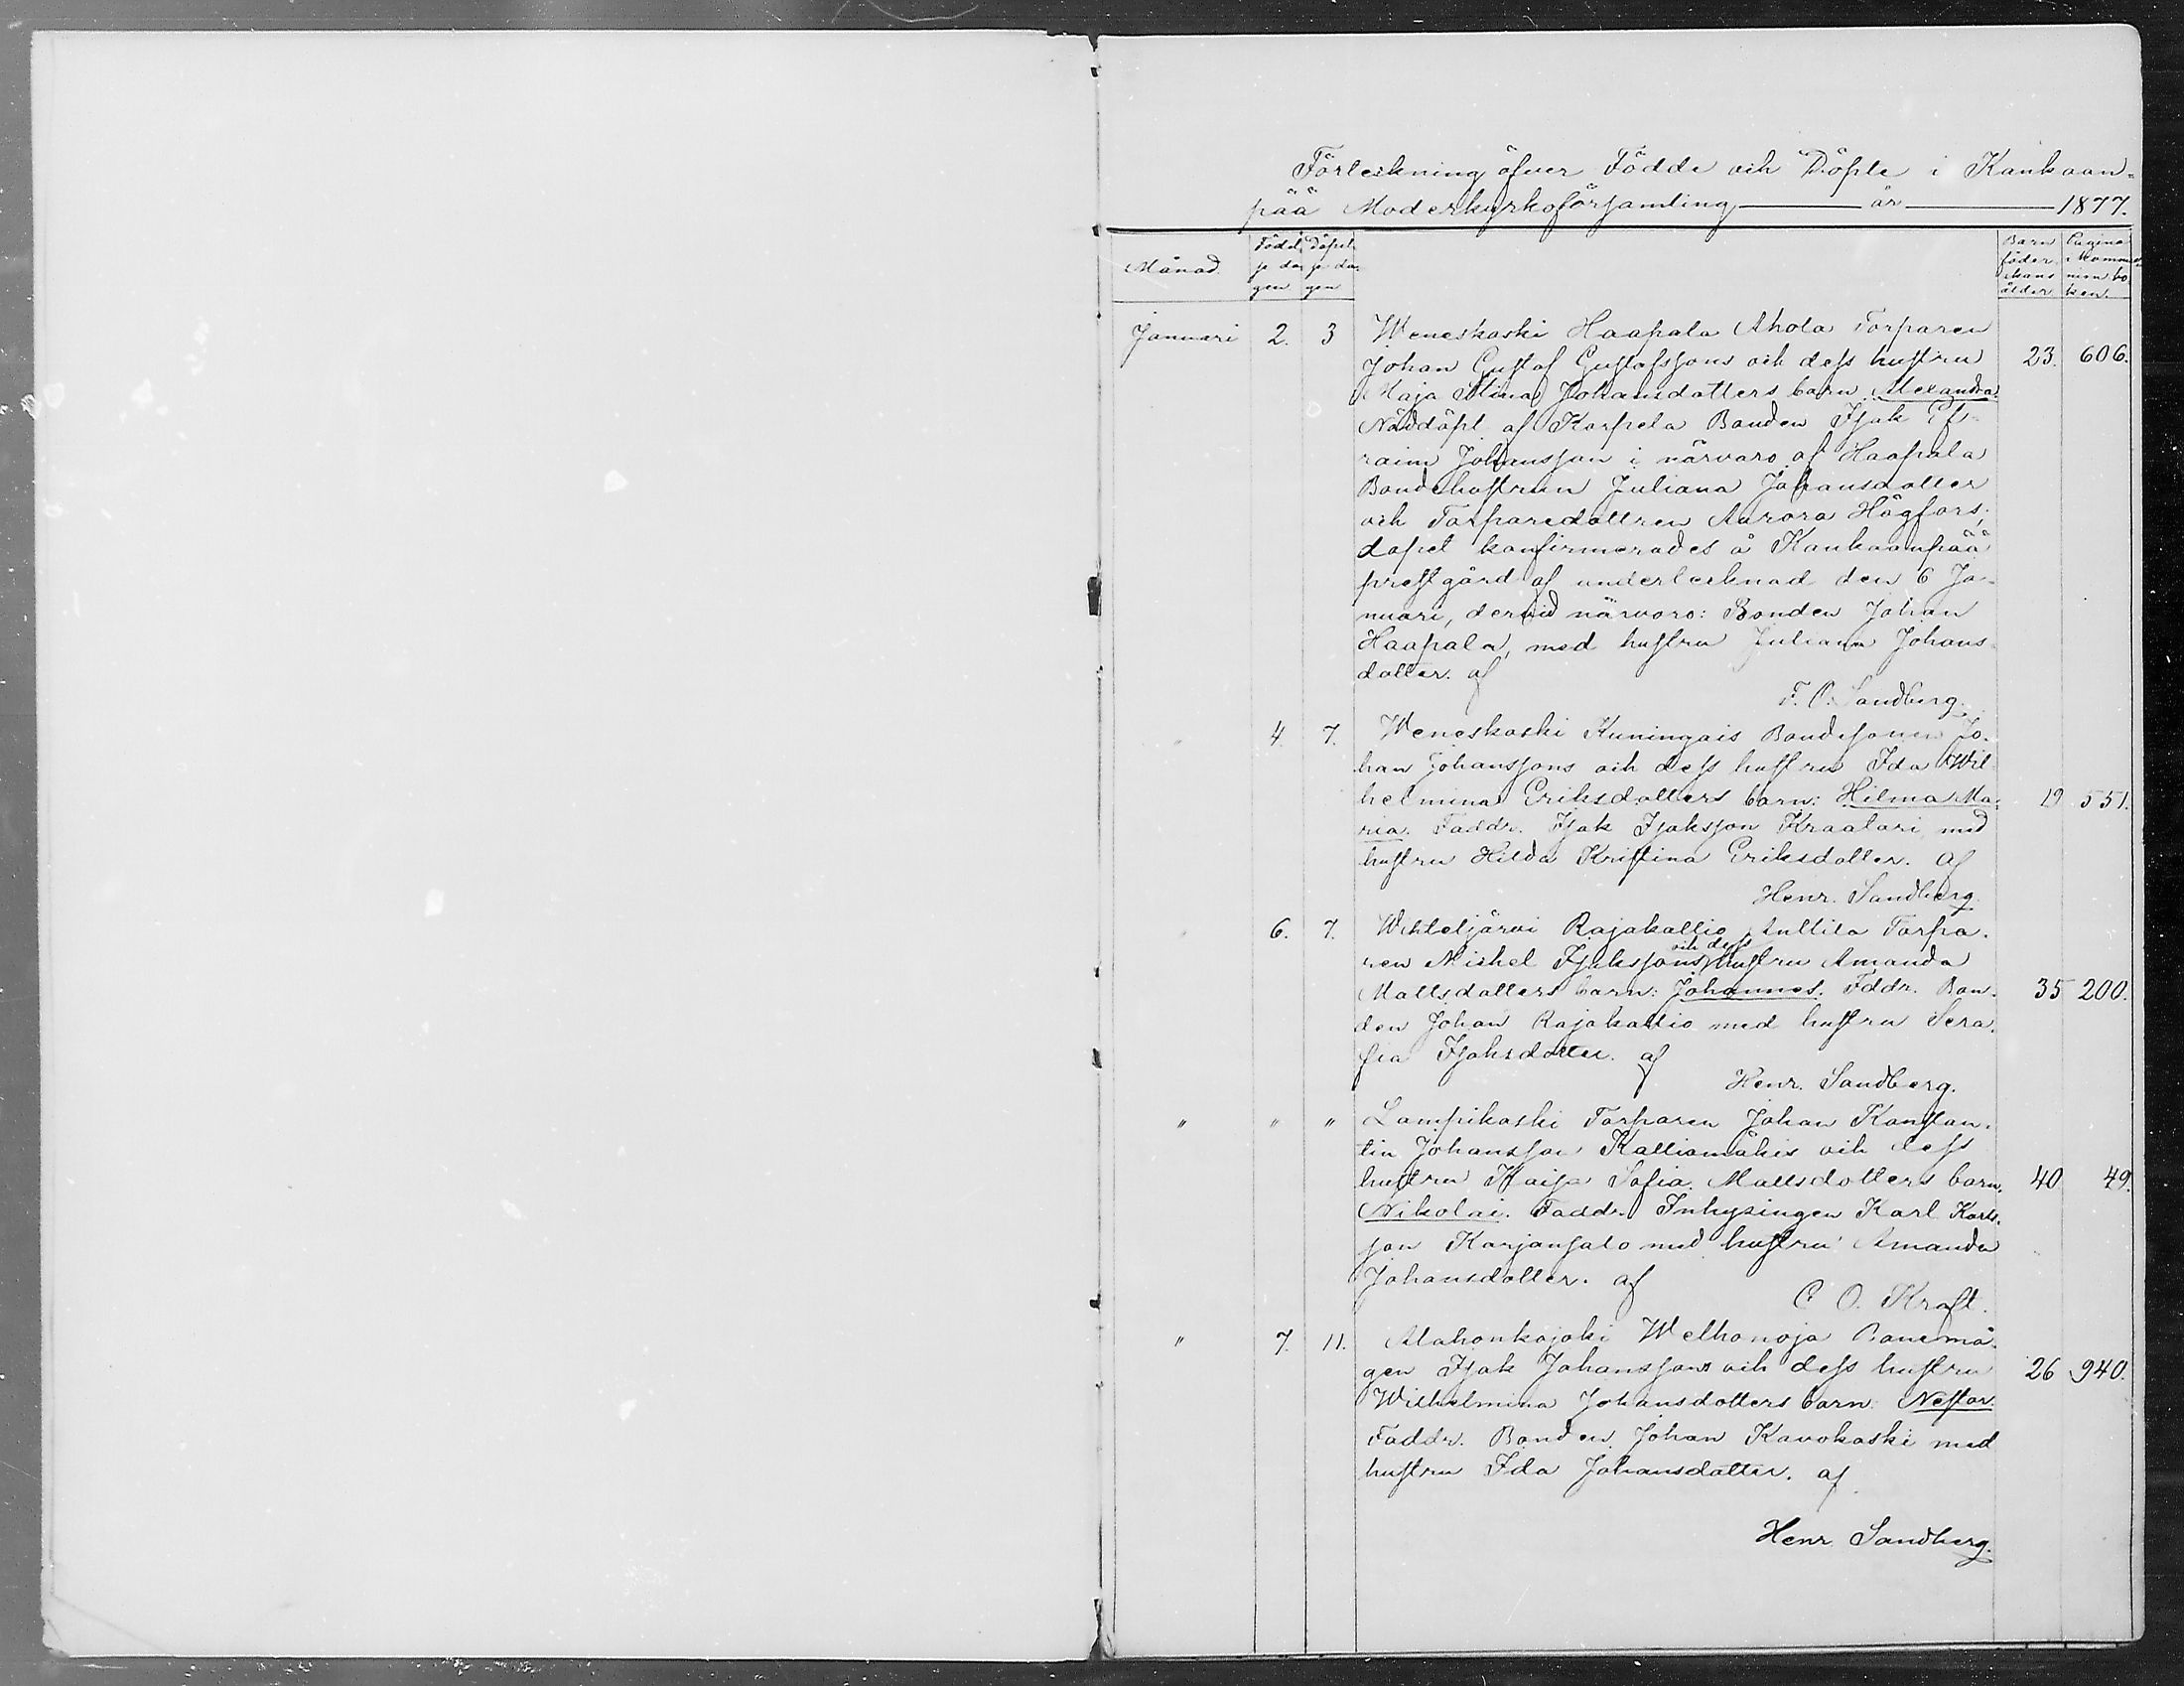 Förteckning öfver Födde och Döpte i Kankaan-
pää Moderkyrkoförsamling år 1877.
Månad. Födel se dagen Döpel se dagen Barn föder skans ålder Pagina i Kommu nion bo ken.
Januari 2. 3 Weneskoski Haapala Ahola Torparen
Johan Gustaf Gustafssons och dess hustru 23. 606.
Maja Stina Johansdotters barn Alexandra.
Nöddöpt af Korpela Bonden Isak Ef-
raim Johansson i närvaro af Haapala
Bondehustrun Juliana Johansdotter
och Torparedottren Aurora Högfors;
dopet konfirmerades å Kankaanpää
prestgård af undertecknad den 6 Ja-
nuari, dervid närvoro: Bonden Johan
Haapala, med hustru Juliana Johans-
dotter. af
F. O. Sandberg.
" 4. 7. Weneskoski Kuningais Bondesonen Jo-
han Johanssons och dess hustru Ida Wil-
helmina Eriksdotters barn: Hilma Ma- 19 551.
ria. Faddr. Isak Isaksson Kraatari med
hustru Hilda Kristina Eriksdotter. af
Henr. Sandberg.
" 6. 7. Wihteljärvi Rajakallio Anttila Torpa-
ren Mickel Isakssons och dess hustru Amanda
Mattsdotters barn: Johannes. Fddr. Bon- 35 200.
den Johan Rajakallio med hustru Sera-
fia Isaksdotter. af
Henr. Sandberg.
" " " Lampikoski Torparen Johan Konstan-
tin Johansson Kalliomäkis och dess
hustru Maija Sofia Mattsdotters barn. 40 49.
Nikolai. Faddr. Inhysingen Karl Karls-
son Karjansalo med hustru Amanda
Johansdotter. af
C. O. Kraft.
" 7. 11. Alahonkajoki Welhonoja Bonemå-
gen Isak Johanssons och dess hustru 26 940.
Wilhelmina Johansdotters barn: Nestor.
Faddr. Bonden Johan Kavokoski med
hustru Ida Johansdotter. af
Henr Sandberg.